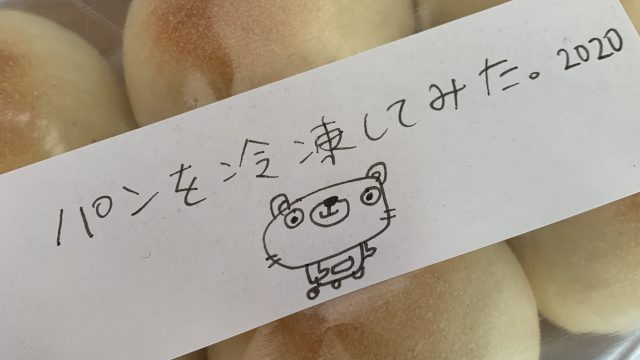 パンを冷凍してみた。2020